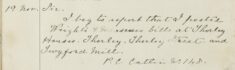 19 Nov. Sir,
I beg to report that I posted
Wrights & Co. issues bills at Shirley
House. Shirley. Shirley Street. and
Twyford Mill.
P.C. 148.